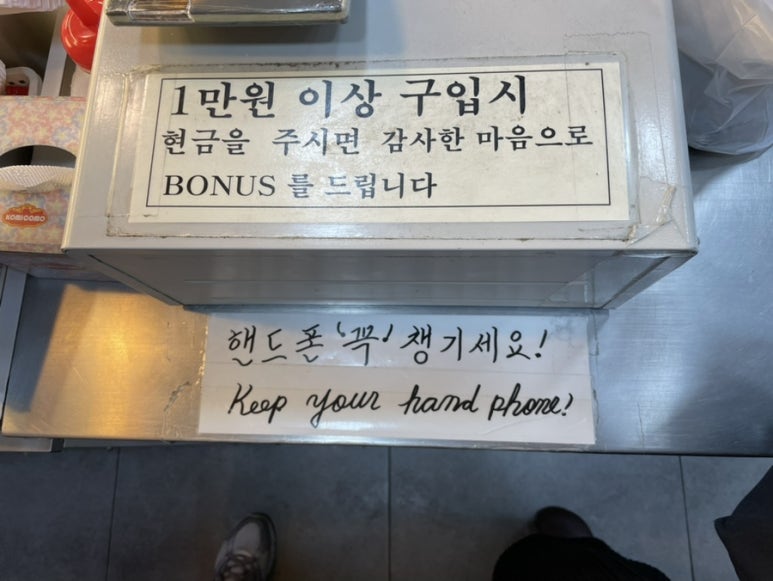 1만원 이상 구입시
현금을 주시면 감사한 마음으로
BONUS 를 드립니다
KOMICOMO
핸드폰 '꼭' 챙기세요!
Keep your hand phone!